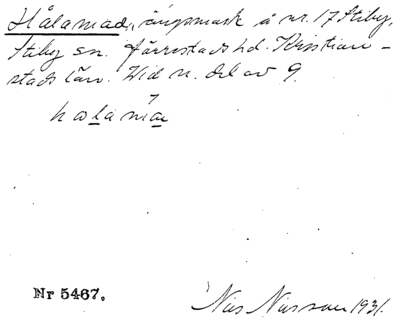 Hålamad, ängsmark å nr. 17 Stiby,
Stiby sn. Järrestads hd. Kristian-
stads län. Vid n. del av 9.
Nr 5467.
Nils Nilsson 1931.